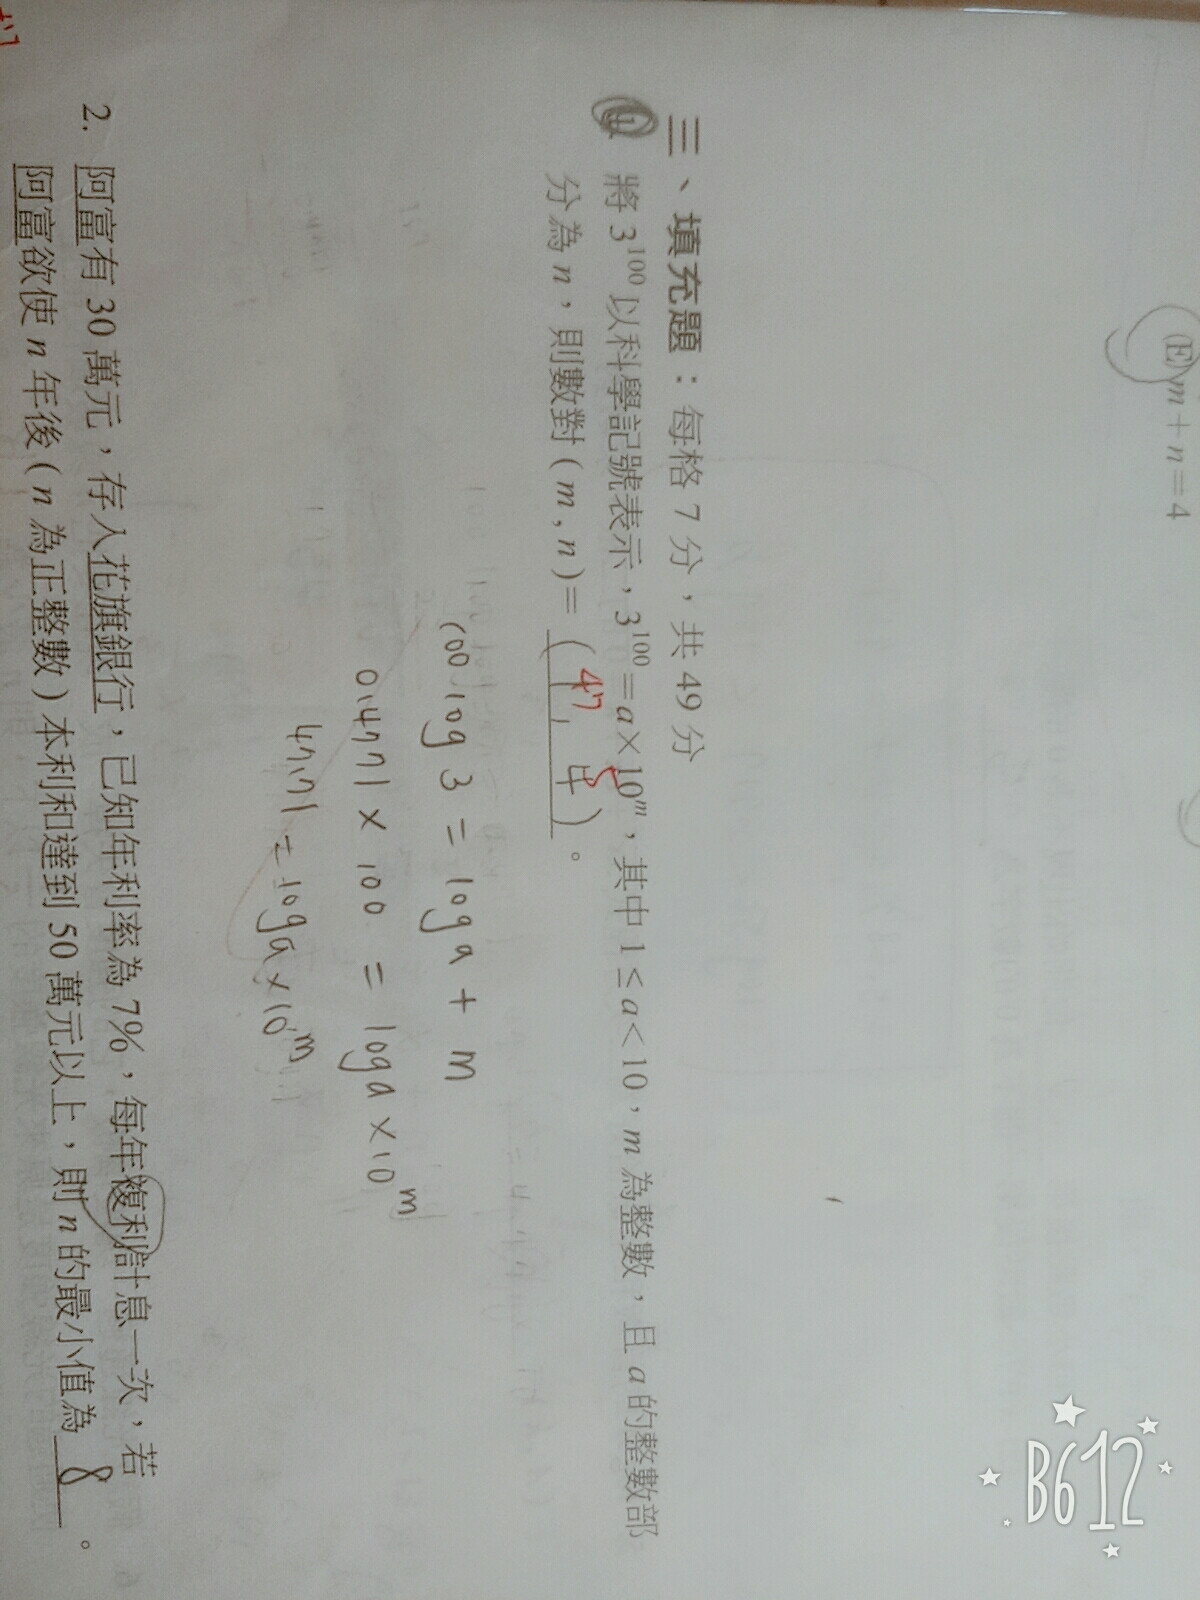 (E) m + n = 4
三、填充題：每格 7 分，共 49 分
將 3^100 以科學記號表示，3^100 = a × 10^m，其中 1 ≤ a < 10，m 為整數，且 a 的整數部
分為 n，則數對 (m , n) = (47, 5)。
100 log 3 = log a + m
0.4771 × 100 = log a × 10^m
47.71 = log a × 10^m
2. 阿富有 30 萬元，存入花旗銀行，已知年利率為 7%，每年複利計息一次，若
阿富欲使 n 年後 ( n 為正整數 ) 本利和達到 50 萬元以上，則 n 的最小值為 8 。
B612